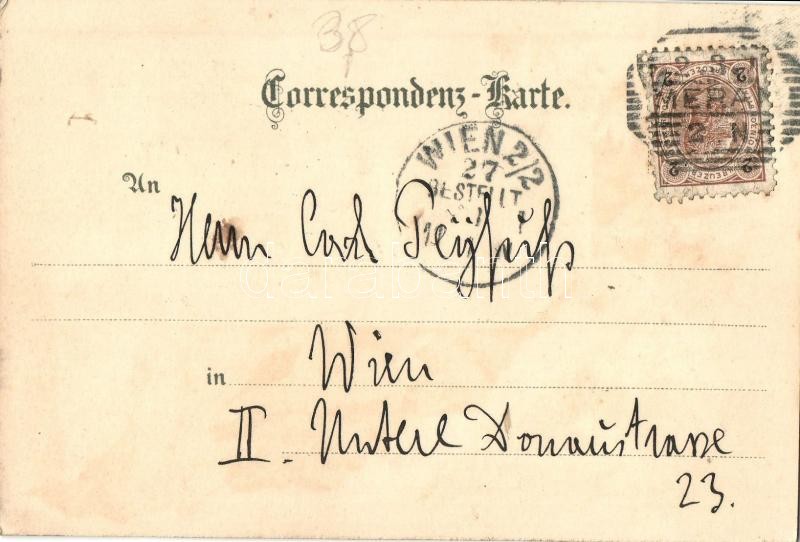 38
Correspondenz-Karte.
WIEN 2/2
27
BESTELLT
An
Herrn Carl
in Wien
II. Untere Donaustrasse
23.
darabanth
2
KREUZER
MERA